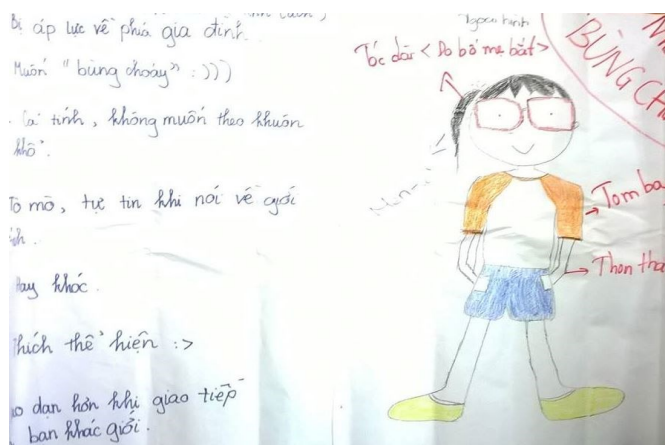 Bị áp lực về phía gia đình.
Muốn "bùng cháy" :)))
. Cá tính, không muốn theo khuôn
khổ.
Tò mò, tự tin khi nói về giới
Hay khóc.
thích thể hiện :>
dạn hơn khi giao tiếp
bạn khác giới.
Ngoại hình
Tóc dài < Do bố mẹ bắt >
BÙNG
Tom
Thon